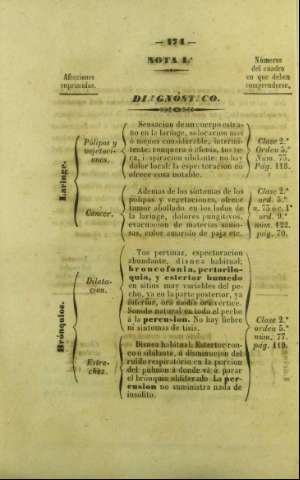 — 174 —
NOTA 1.ª
Afecciones suprimidas.
Números del cuadro en que deben comprenderse.
DIAGNÓSTICO.
Laringe.
Pólipos y vejetaciones.
Sensacion de un cuerpo estraño
en la laringe, sofocacion mas
ó menos considerable, intermitente;
ronquera ó afonia, tos seca,
inspiracion sibilante: no hay
dolor local: la espectoracion no
ofrece cosa notable.
Clase 2.ª
Orden 5.º
Num. 75.
Pág. 118.
Cancer.
Ademas de los síntomas de los
pólipos y vegetaciones, ofrece
tumor abollado en los lados de
la laringe, dolores pungitivos,
evacuacion de materias saniosas,
color amarillo de paja etc.
Clase 2.ª
ord. 5.º
n. 75 cl. 1.ª
ord. 9.º
núm. 122.
pág. 70.
Brónquios.
Dilatacion.
Tos pertinaz, espectoracion
abundante, disnea habitual;
broncofonia, pectoriloquia,
y estertor humedo
en sitios muy variables del pecho,
ya en la parte posterior, ya
inferior, ora media ora vértice.
Sonido natural en todo el pecho
á la percusion. No hay fiebre
ni síntomas de tisis.
Estrechez.
Disnea habitual. Estertor ronco
ó sibilante, ó disminucion del
ruido respiratorio en la porcion
del pulmon á donde vá á parar
el brónquio obliterado. La percusion
no suministra nada de
insolito.
Clase 2.ª
orden 5.º
núm. 77.
pág. 119.